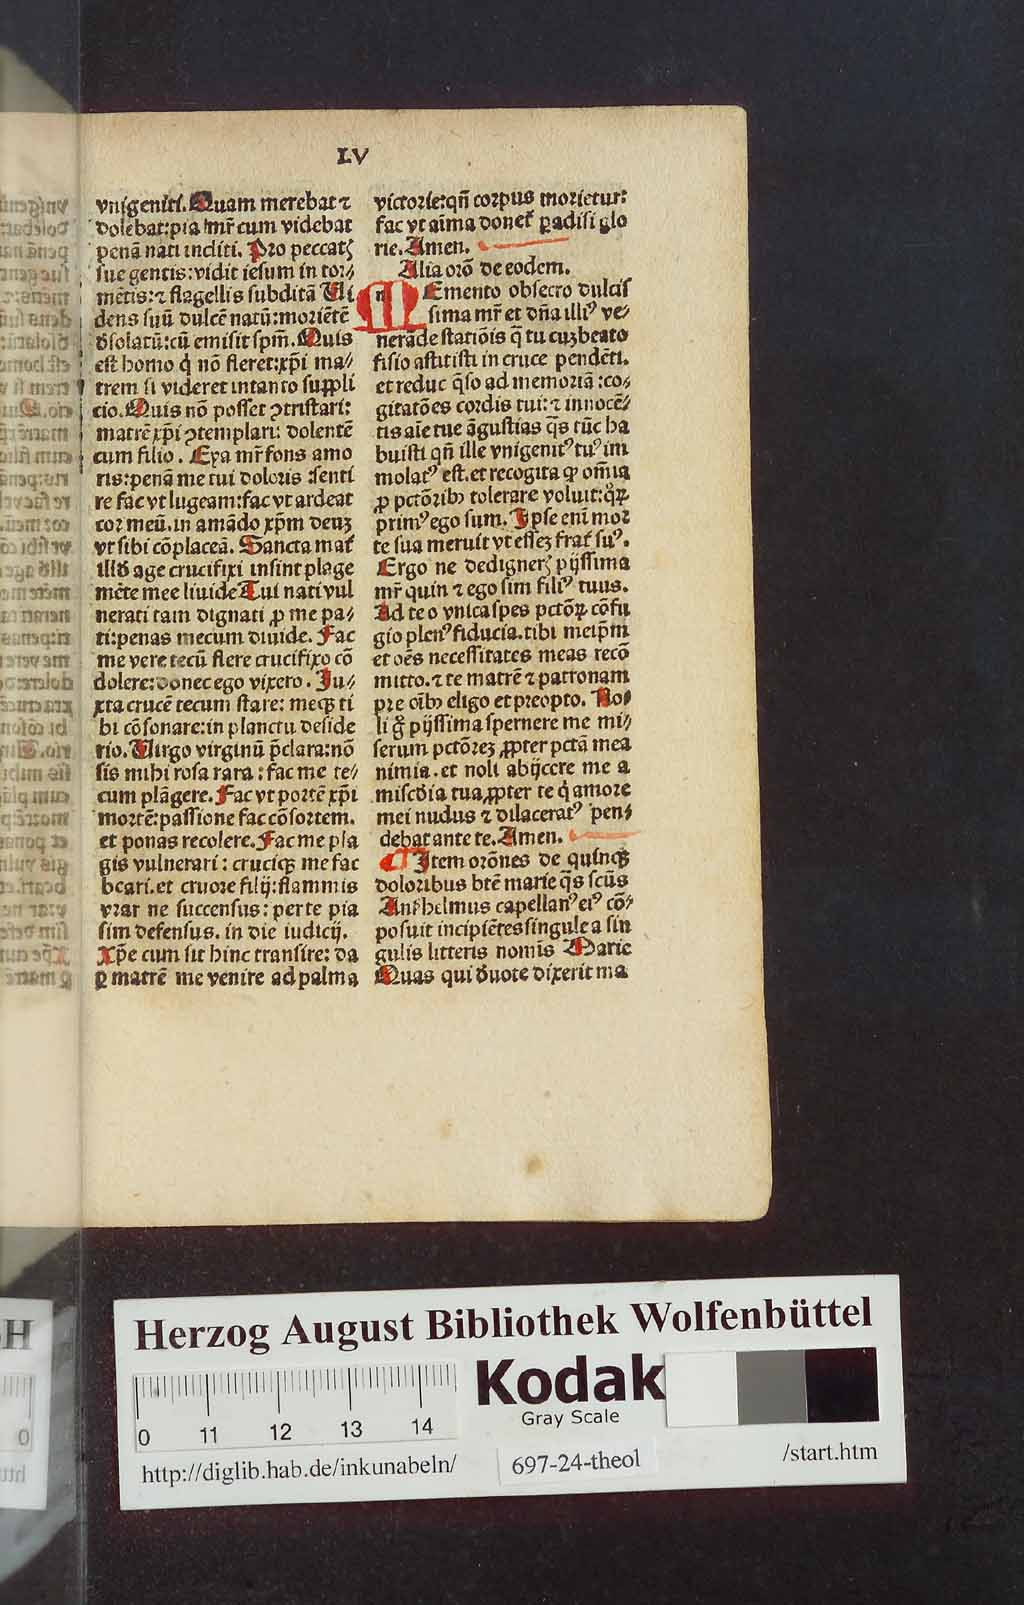 LV
vnigeniti. Quam merebat ⁊
dolebat: pia mr̃ cum videbat
penã nati inditi. Pro peccatꝭ
sue gentis: vidit iesum in tor⸗
mẽtis: ⁊ flagellis subditã Vi
dens suũ dulcẽ natũ: moriẽtẽ
d̃solatũ: cũ emisit spm̃. Quis
est homo q̇ nõ fleret: xp̃i ma⸗
trem si videret in tanto suppli
cio. Quis nõ posset ꝯtristari:
matrẽ xp̃i ꝯtemplari: dolentẽ
cum filio. Eya mr̃ fons amo
ris: penã me tui doloris senti
re fac vt lugeam: fac vt ardeat
cor meũ. in amãdo xp̃m deuꝫ
vt sibi cõplaceã. Sancta mat̃
illd̃ age crucifixi in sint plage
mẽte mee liuide Tui nati vul
nerati tam dignati ꝓ me pa⸗
ti: penas mecum diuide. Fac
me vere tecũ flere crucifixo cõ
dolere: donec ego vixero. Ju⸗
xta crucẽ tecum stare: meqꝫ ti
bi cõsonare: in planctu deside
rio. Virgo virginũ p̃clara: nõ
sis mihi rosa rara: fac me te⸗
cum plãgere. Fac vt portẽ xp̃i
mortẽ: passione fac cõsortem.
et ponas recolere. Fac me pla
gis vulnerari: cruciqꝫ me fac
beari. et cruore filij: flammis
vrar ne succensus: per te pia
sim defensus. in die iudicij.
Xp̃e cum sit hinc transire: da
ꝑ matrẽ me venire ad palma
victorie: qñ corpus morietur:
fac vt aĩma donet̃ ꝑadisi glo
rie. Amen.
Alia orõ de eodem.
MEmento obsecro dulcis
sima mr̃ et dña illiꝰ ve⸗
nerãde statiõis q̃ tu cuꝫ beato
fisio astitisti in cruce pendẽti.
et reduc q̃so ad memoriã: co⸗
gitatões cordis tui: ⁊ innocẽ⸗
tis aĩe tue ãgustias q̃s tũc ha
buisti qñ ille vnigenitꝰ tuꝰ im
molatꝰ est. et recogita ꝙ om̃ia
ꝓ pctõribꝰ tolerare voluit: qꝛ̊
primꝰ ego sum. Ipse enĩ mor
te sua meruit vt esseꝫ frat̃ suꝰ.
Ergo ne dedignerꝭ pijssima
mr̃ quin ⁊ ego sim filiꝰ tuus.
Ad te o vnica spes pctõꝝ cõfu
gio plenꝰ fiducia. tibi meip̃m
et oẽs necessitates meas recõ
mitto. ⁊ te matrẽ ⁊ patronam
pre oĩbꝰ eligo et preopto. No⸗
li g̊ pijssima spernere me mi⸗
serum pctõreꝫ ꝓpter pctã mea
nimia. et noli abijcere me a
misc̃dia tua ꝓpter te q̇ amore
mei nudus ⁊ dilaceratꝰ pen⸗
debat ante te. Amen.
¶ Item orõnes de quinqꝫ
doloribus btẽ marie q̃s scũs
Anshelmus capellanꝰ eiꝰ cõ⸗
posuit incipiẽtes singule a sin
gulis litteris nomĩs Marie
Quas qui d̃uote dixerit ma
Herzog August Bibliothek Wolfenbüttel
Kodak
Gray Scale
0 11 12 13 14
http://diglib.hab.de/inkunabeln/
697-24-theol
/start.htm